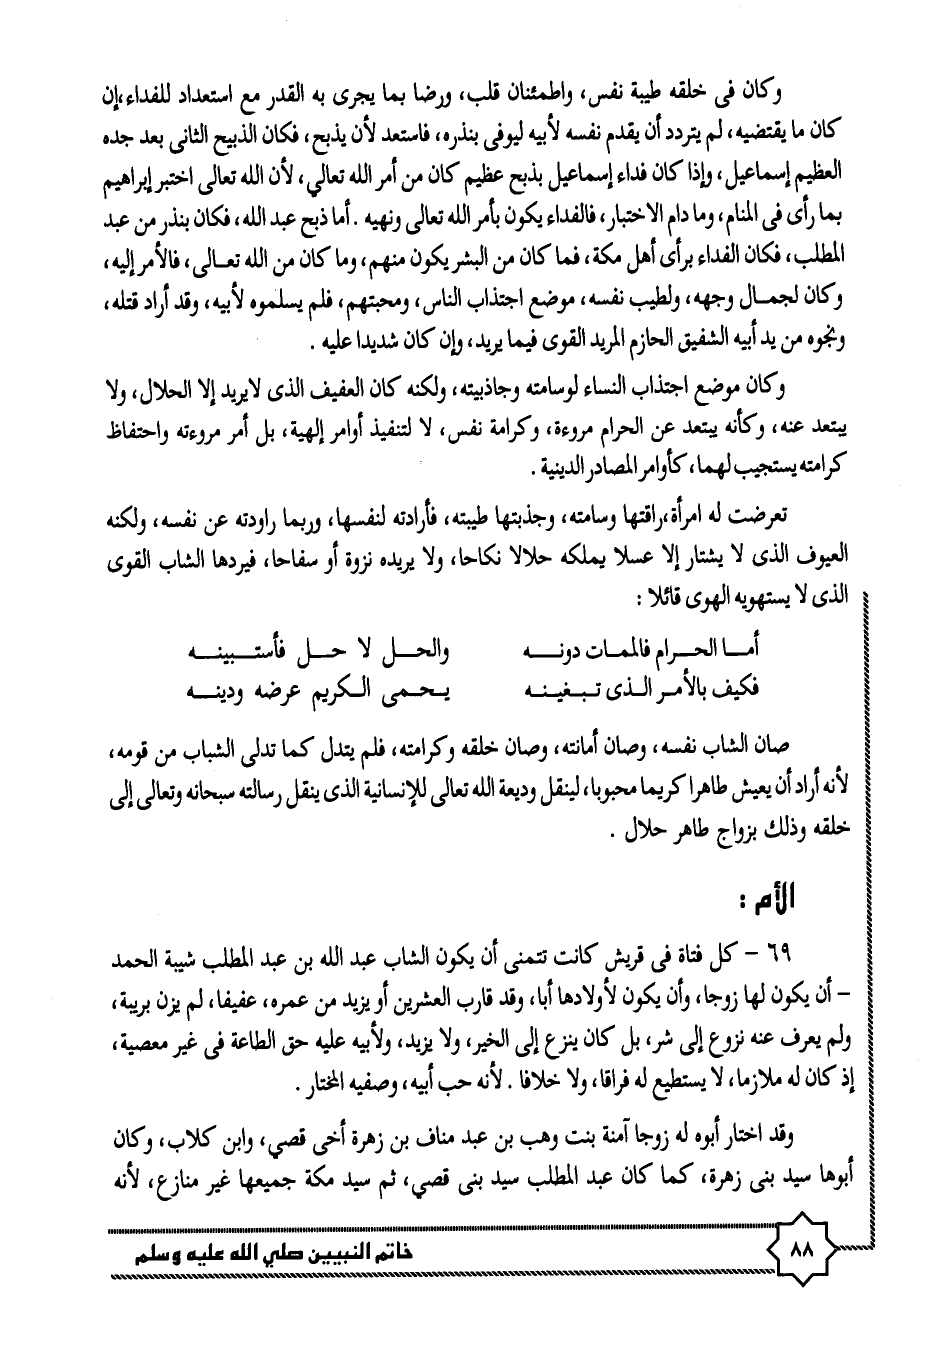 وكان فى خلقه طيبة نفس، واطمئنان قلب، ورضا بما يجرى به القدر مع استعداد للفداء،إن
كان ما يقتضيه، لم يتردد أن يقدم نفسه لأبيه ليوفى بنذره، فاستعد لأن يذبح، فكان الذبيح الثانى بعد جده
العظيم إسماعيل، وإذا كان فداء إسماعيل بذبح عظيم كان من أمر الله تعالي، لأن الله تعالى اختبر إبراهيم
بما رأى فى المنام، وما دام الاختبار، فالفداء يكون بأمر الله تعالى ونهيه . أما ذبح عبد الله، فكان بنذر من عبد
المطلب، فكان الفداء برأى أهل مكة، فما كان من البشر يكون منهم، وما كان من الله تعـالى، فالأمر إليه،
وكان لجمـال وجهه، ولطيب نفسه، موضع اجتذاب الناس، ومحبتهم، فلم يسلموه لأبيه، وقد أراد قتله،
ونجوه من يد أبيه الشفيق الحازم المريد القوى فيما يريد، وإن كان شديدا عليه .
وكان موضع اجتذاب النساء لوسامته وجاذبيته، ولكنه كان العفيف الذى لايريد إلا الحلال، ولا
يبتعد عنه، وكأنه يبتعد عن الحرام مروءة، وكرامة نفس، لا لتنفيذ أوامر إلهية، بل أمر مروءته واحتفاظ
كرامته يستجيب لهما، كأوامر المصادر الدينية .
تعرضت له امرأة،راقتها وسامته، وجذبتها طيبته، فأرادته لنفسها، وربما راودته عن نفسه، ولكنه
العيوف الذى لا يشتار إلا عسلا يملكه حلالا نكاحا، ولا يريده نزوة أو سفاحا، فيردها الشاب القوى
الذى لا يستهويه الهوى قائلا :
أمـا الحـرام فالممـات دونـــه والحــل لا حــل فأستــبينـــه
فكيف بالأمـر الـذى تـبـغينـه يـحـمى الـكريم عرضه ودينـــه
صان الشاب نفسه، وصان أمانته، وصان خلقه وكرامته، فلم يتدل كما تدلى الشباب من قومه،
لأنه أراد أن يعيش طاهرا كريما محبوبا، لينقل وديعة الله تعالى للإنسانية الذى ينقل رسالته سبحانه وتعالى إلى
خلقه وذلك بزواج طاهر حلال .
الأم :
٦٩ – كل فتاة فى قريش كانت تتمنى أن يكون الشاب عبد الله بن عبد المطلب شيبة الحمد
– أن يكون لها زوجا، وأن يكون لأولادها أبا، وقد قارب العشرين أو يزيد من عمره، عفيفا، لم يزن بريبة،
ولم يعرف عنه نزوع إلى شر، بل كان ينزع إلى الخير، ولا يزيد، ولأبيه عليه حق الطاعة فى غير معصية،
إذ كان له ملازما، لا يستطيع له فراقا، ولا خلافا . لأنه حب أبيه، وصفيه المختار .
وقد اختار أبوه له زوجا آمنة بنت وهب بن عبد مناف بن زهرة أخى قصي، وابن كلاب، وكان
أبوها سيد بنى زهرة، كما كان عبد المطلب سيد بنى قصي، ثم سيد مكة جميعها غير منازع، لأنه
٨٨
خاتم النبيين صلي الله عليه وسلم